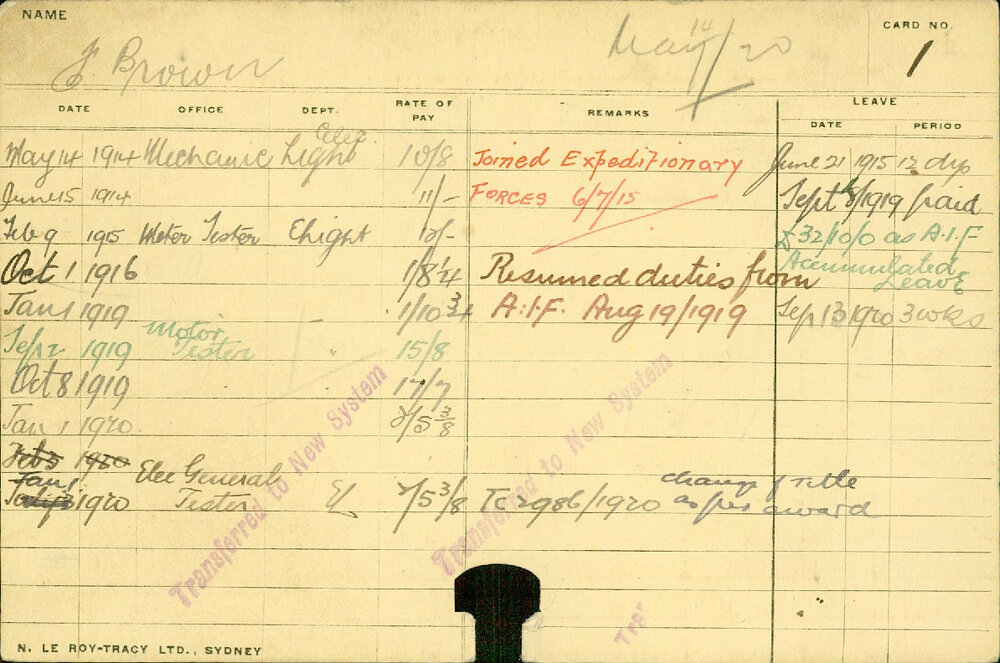 NAME
CARD NO.
F. Brown
May 14/20
1
DATE OFFICE DEPT. RATE OF PAY REMARKS LEAVE
DATE PERIOD
May 14 1914 Mechanic Elec Light 10/8 Joined Expeditionary June 21 1915 12 dys
June 15 1914 11/- FORCES 6/7/15 Sept 8/1919 paid
Feb 9 1915 Meter Tester Elight 12/- £32/10/0 as A.I.F
Oct 1 1916 1/8¼ Resumed duties from Accumulated Leave
Jan 1 1919 " 1/10¾ A.I.F. Aug 19/1919 Sep 13 1920 3 wks
Sep 2 1919 Motor Tester " 15/8
Oct 8 1919 17/7
Jan 1 1920 2/5 3/8
Feb 5 1920
Jan 1 1920 Elec General Tester El 2/5 3/8 TC 2986/1920 change of title as per award
Transferred to New System
Transferred to New System
Tra
N. LE ROY-TRACY LTD., SYDNEY